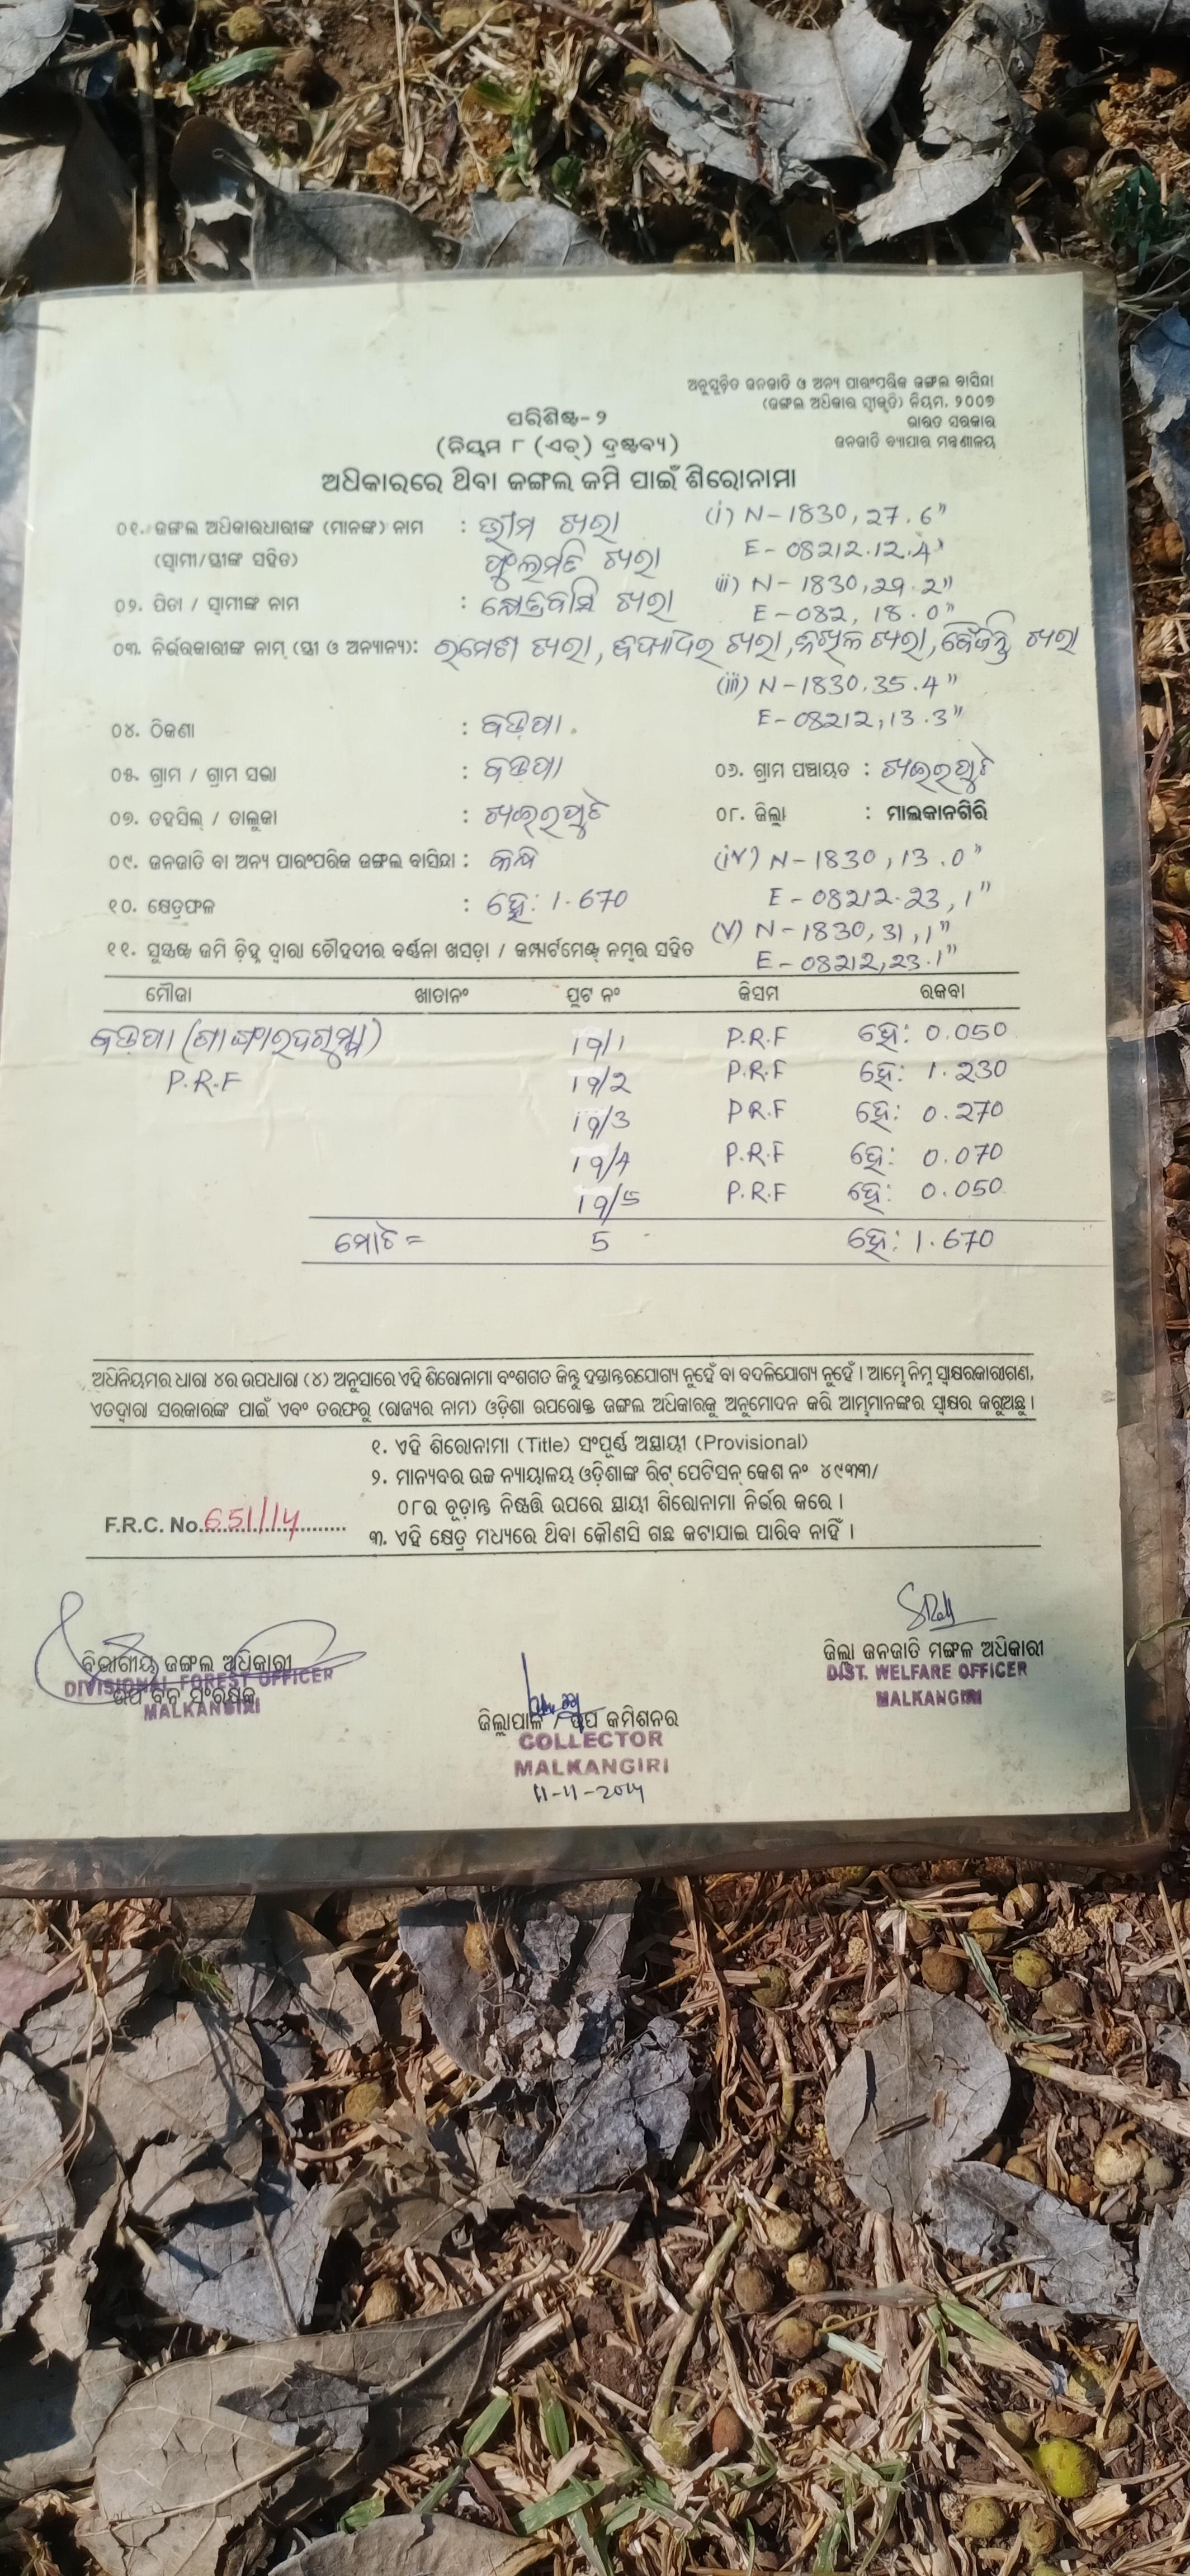 ଅନୁସୂଚିତ ଜନଜାତି ଓ ଅନ୍ୟ ପାରଂପରିକ ଜଙ୍ଗଲ ବାସିନ୍ଦା
(ଜଙ୍ଗଲ ଅଧିକାର ସ୍ୱୀକୃତି) ନିୟମ, ୨୦୦୭
ଭାରତ ସରକାର
ଜନଜାତି ବ୍ୟାପାର ମନ୍ତ୍ରଣାଳୟ
ପରିଶିଷ୍ଟ- ୨
(ନିୟମ ୮ (ଏଚ୍) ଦ୍ରଷ୍ଟବ୍ୟ)
ଅଧିକାରରେ ଥିବା ଜଙ୍ଗଲ ଜମି ପାଇଁ ଶିରୋନାମା
୦୧. ଜଙ୍ଗଲ ଅଧିକାରଧାରୀଙ୍କ (ମାନଙ୍କ) ନାମ : ଭୀମ ଖରା (i) N-1830, 27.6"
(ସ୍ୱାମୀ/ସ୍ତ୍ରୀଙ୍କ ସହିତ) ଫୁଲମତି ଖରା E-08212.12.4"
୦୨. ପିତା / ସ୍ୱାମୀଙ୍କ ନାମ : କ୍ଷେତ୍ରବାସି ଖରା (ii) N-1830,29.2"
E-082, 18.0"
୦୩. ନିର୍ଭରକାରୀଙ୍କ ନାମ୍ (ସ୍ତ୍ରୀ ଓ ଅନ୍ୟାନ୍ୟ): ରମେଶ ଖରା, ଖରା, ଖରା, ଖରା
(iii) N-1830.35.4"
୦୪. ଠିକଣା : ବଡ଼ପା. E-08212,13.3"
୦୫. ଗ୍ରାମ / ଗ୍ରାମ ସଭା : ବଡପା ୦୬. ଗ୍ରାମ ପଞ୍ଚାୟତ : ଖଇରପୁଟ
୦୭. ତହସିଲ୍ / ତାଲୁକା : ଖଇରପୁଟ ୦୮. ଜିଲ୍ଲା : ମାଲକାନଗିରି
୦୯. ଜନଜାତି ବା ଅନ୍ୟ ପାରଂପରିକ ଜଙ୍ଗଲ ବାସିନ୍ଦା : (iv) N-1830, 13.0"
୧୦. କ୍ଷେତ୍ରଫଳ : ହେ: 1.670 E-08212.23,1"
୧୧. ସୁସ୍ପଷ୍ଟ ଜମି ଚିହ୍ନ ଦ୍ୱାରା ଚୌହଦୀର ବର୍ଣ୍ଣନା ଖସଡ଼ା / କମ୍ପାର୍ଟମେଣ୍ଟ୍ ନମ୍ବର ସହିତ (v) N-1830,31,1"
E-08212,23.1"
ମୌଜା ଖାତାନଂ ପ୍ଲଟ ନଂ କିସମ ରକବା
ବଡ଼ପା 19/1 P.R.F ହେ: 0.050
P.R.F 19/2 P.R.F ହେ: 1.230
19/3 P.R.F ହେ: 0.270
19/4 P.R.F ହେ: 0.070
19/5 P.R.F ହେ: 0.050
ମୋଟ = 5 ହେ: 1.670
ଅଧିନିୟମର ଧାରା ୪ର ଉପଧାରା (୪) ଅନୁସାରେ ଏହି ଶିରୋନାମା ବଂଶଗତ କିନ୍ତୁ ହସ୍ତାନ୍ତରଯୋଗ୍ୟ ନୁହେଁ ବା ବଦଳିଯୋଗ୍ୟ ନୁହେଁ । ଆମ୍ଭେ ନିମ୍ନ ସ୍ୱାକ୍ଷରକାରୀଗଣ,
ଏତଦ୍ୱାରା ସରକାରଙ୍କ ପାଇଁ ଏବଂ ତରଫରୁ (ରାଜ୍ୟର ନାମ) ଓଡ଼ିଶା ଉପରୋକ୍ତ ଜଙ୍ଗଲ ଅଧିକାରକୁ ଅନୁମୋଦନ କରି ଆମ୍ଭମାନଙ୍କର ସ୍ୱାକ୍ଷର କରୁଅଛୁ ।
୧. ଏହି ଶିରୋନାମା (Title) ସଂପୂର୍ଣ୍ଣ ଅସ୍ଥାୟୀ (Provisional)
୨. ମାନ୍ୟବର ଉଚ୍ଚ ନ୍ୟାୟାଳୟ ଓଡ଼ିଶାଙ୍କ ରିଟ୍ ପେଟିସନ୍ କେଶ ନଂ ୪୯୩୩/
୦୮ର ଚୂଡ଼ାନ୍ତ ନିଷ୍ପତ୍ତି ଉପରେ ସ୍ଥାୟୀ ଶିରୋନାମା ନିର୍ଭର କରେ ।
F.R.C. No. 651/14
୩. ଏହି କ୍ଷେତ୍ର ମଧ୍ୟରେ ଥିବା କୌଣସି ଗଛ କଟାଯାଇ ପାରିବ ନାହିଁ ।
ବିଭାଗୀୟ ଜଙ୍ଗଲ ଅଧିକାରୀ
DIVISIONAL FOREST OFFICER
ଉପ ବନ ସଂରକ୍ଷକ
MALKANGIRI
ଜିଲ୍ଲା ଜନଜାତି ମଙ୍ଗଳ ଅଧିକାରୀ
DIST. WELFARE OFFICER
MALKANGIRI
ଜିଲ୍ଲାପାଳ / ଉପ କମିଶନର
COLLECTOR
MALKANGIRI
11-11-2014